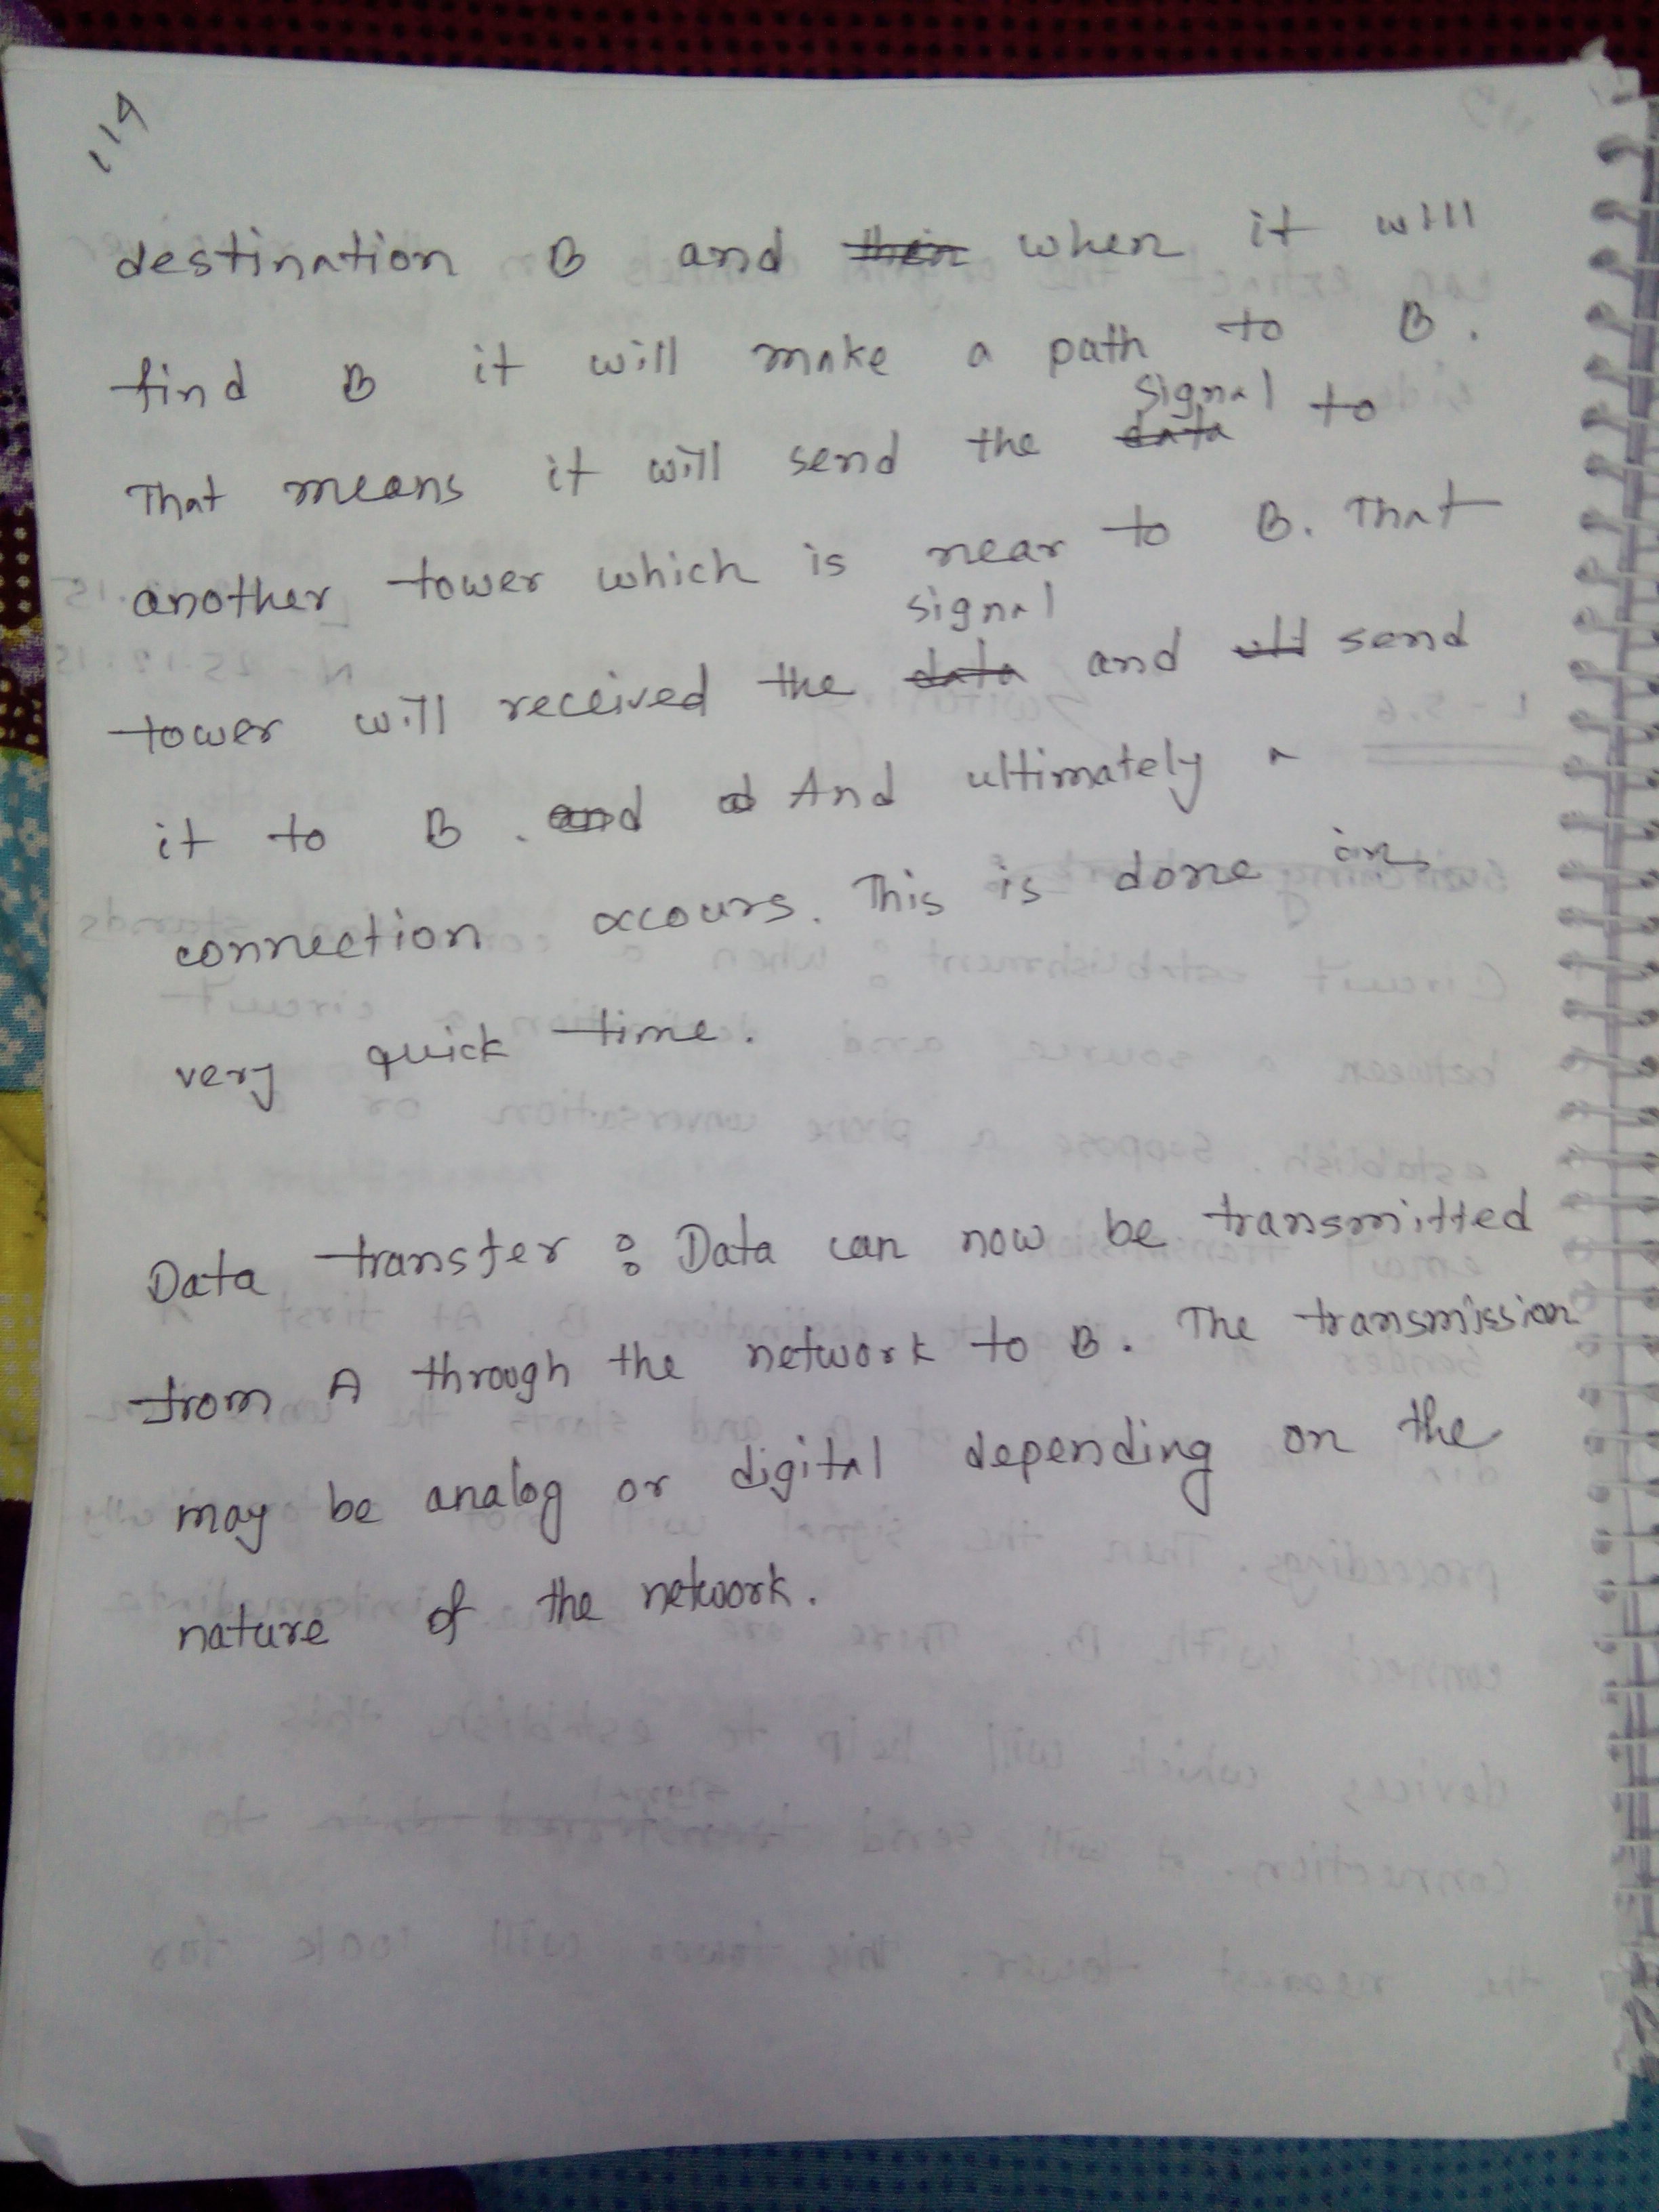 119
destination B and then when it will
find B it will make a path to B.
signal
That means it will send the data to
another tower which is near to B. That
signal
tower will received the data and will send
it to B. and And ultimately a
connection accours. This is done in
very quick time.
Data transfer : Data can now be transmitted
from A through the network to B. The transmission
may be analog or digital depending on the
nature of the network.